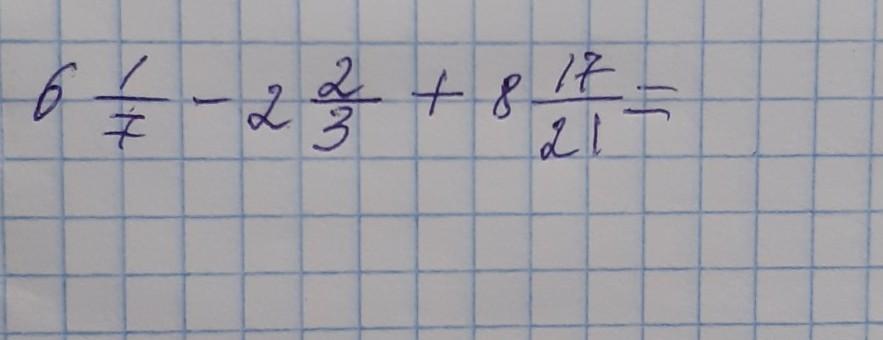 6 1/7 - 2 2/3 + 8 17/21 =